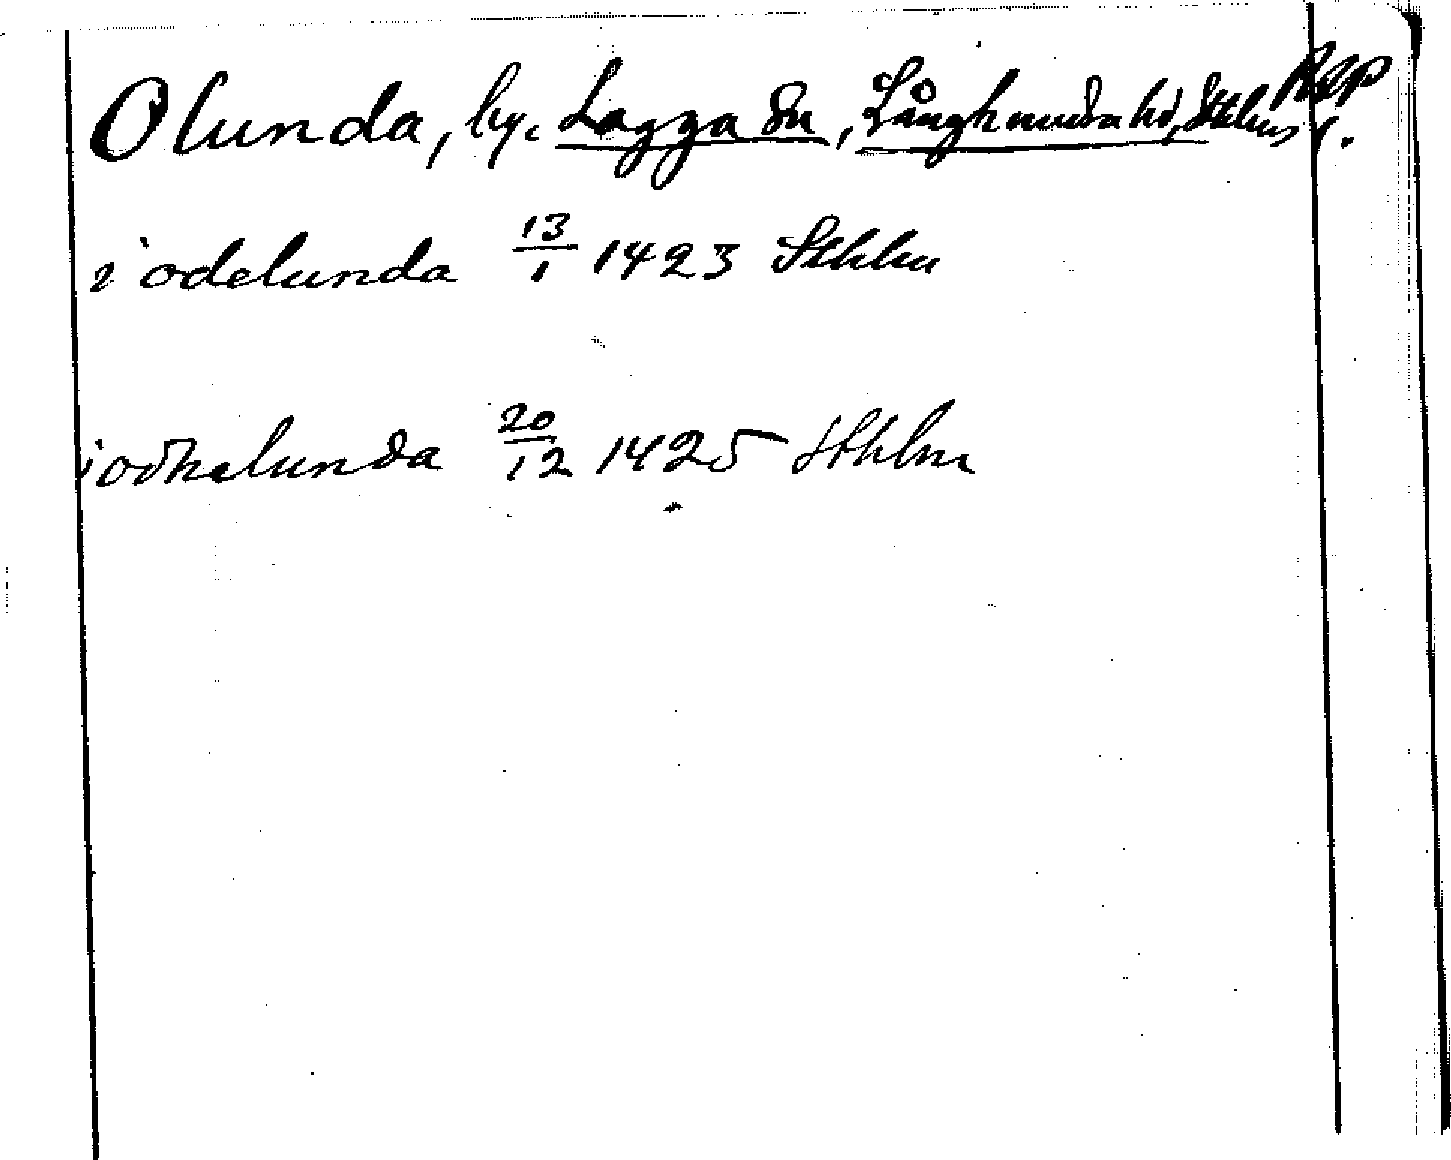 Olunda, by. Lagga sn, Långhundra hd, Sthlms l.
i odelunda 13/1 1423 Sthlm
i odhelunda 20/12 1425 Sthlm